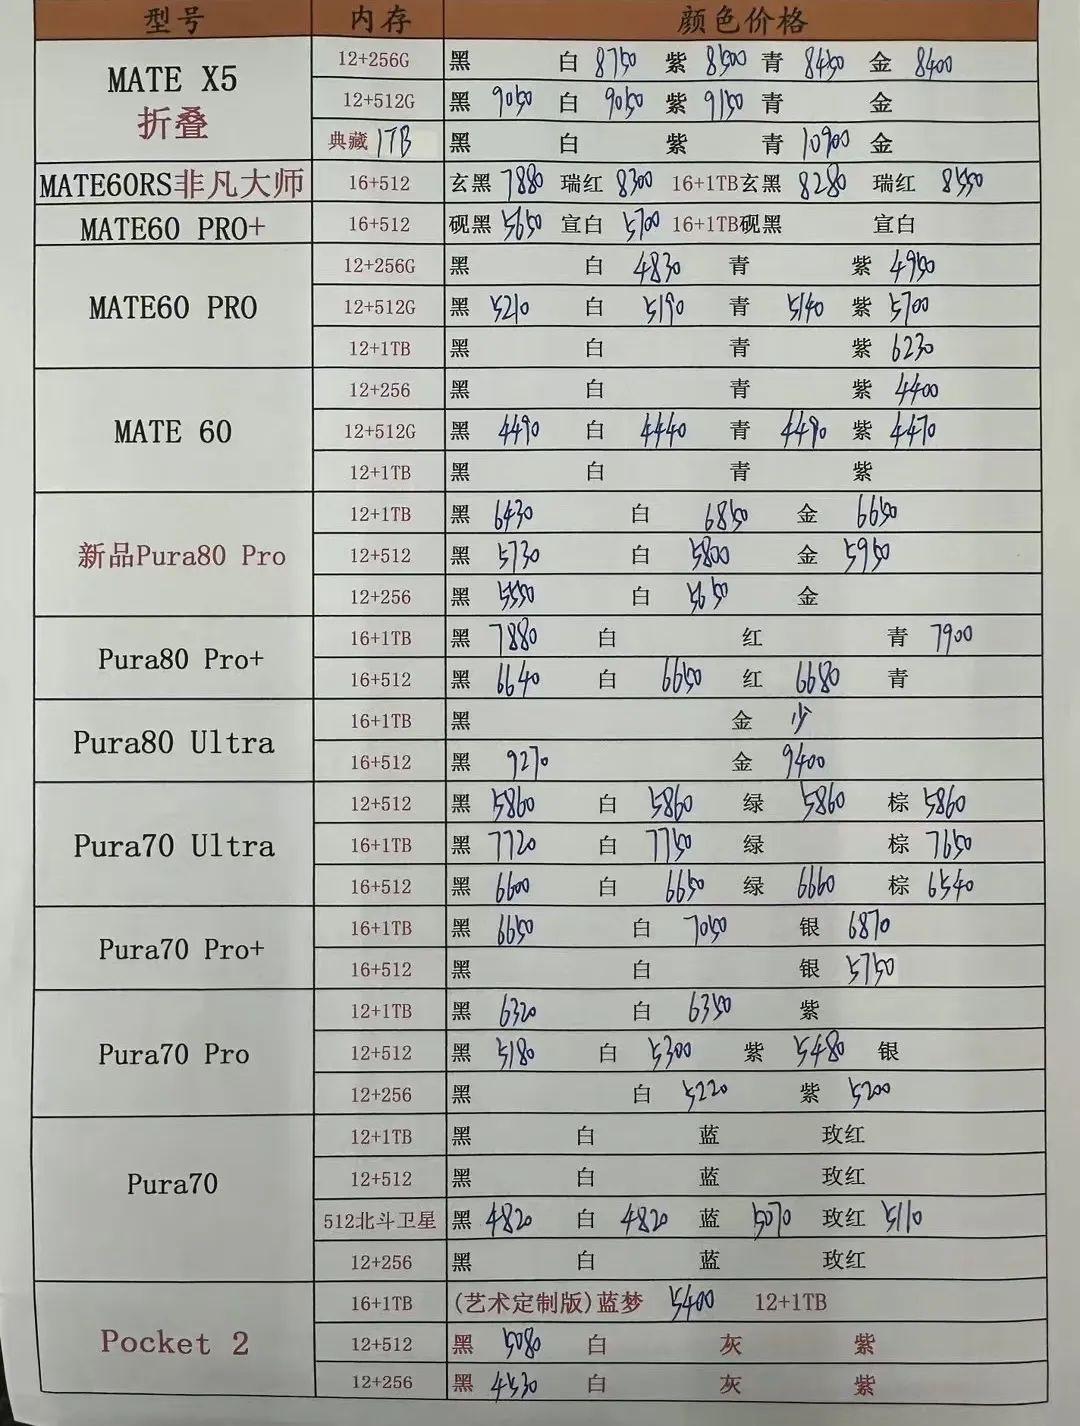 型号 内存 颜色价格
12+256G 黑 白 8750 紫 8500 青 8450 金 8400
MATE X5
折叠
12+512G 黑 9050 白 9050 紫 9150 青 金
典藏 1TB 黑 白 紫 青 10900 金
MATE60RS非凡大师 16+512 玄黑 7880 瑞红 8300 16+1TB玄黑 8280 瑞红 8550
MATE60 PRO+ 16+512 砚黑 5650 宣白 5700 16+1TB砚黑 宣白
12+256G 黑 白 4830 青 紫 4950
MATE60 PRO 12+512G 黑 5210 白 5190 青 5140 紫 5700
12+1TB 黑 白 青 紫 6230
12+256 黑 白 青 紫 4400
MATE 60 12+512G 黑 4490 白 4440 青 4490 紫 4470
12+1TB 黑 白 青 紫
12+1TB 黑 6430 白 6850 金 6650
新品Pura80 Pro 12+512 黑 5730 白 5800 金 5950
12+256 黑 5550 白 5650 金
Pura80 Pro+
16+1TB 黑 7880 白 红 青 7900
16+512 黑 6640 白 6650 红 6680 青
Pura80 Ultra
16+1TB 黑 金 少
16+512 黑 9270 金 9400
12+512 黑 5860 白 5860 绿 5860 棕 5860
Pura70 Ultra 16+1TB 黑 7720 白 7750 绿 棕 7650
16+512 黑 6600 白 6650 绿 6660 棕 6540
Pura70 Pro+
16+1TB 黑 6650 白 7050 银 6870
16+512 黑 白 银 5750
12+1TB 黑 6320 白 6350 紫
Pura70 Pro 12+512 黑 5180 白 5300 紫 5480 银
12+256 黑 白 5220 紫 5200
12+1TB 黑 白 蓝 玫红
Pura70 12+512 黑 白 蓝 玫红
512北斗卫星 黑 4820 白 4820 蓝 5070 玫红 5110
12+256 黑 白 蓝 玫红
16+1TB (艺术定制版)蓝梦 5400 12+1TB
Pocket 2 12+512 黑 5080 白 灰 紫
12+256 黑 4530 白 灰 紫